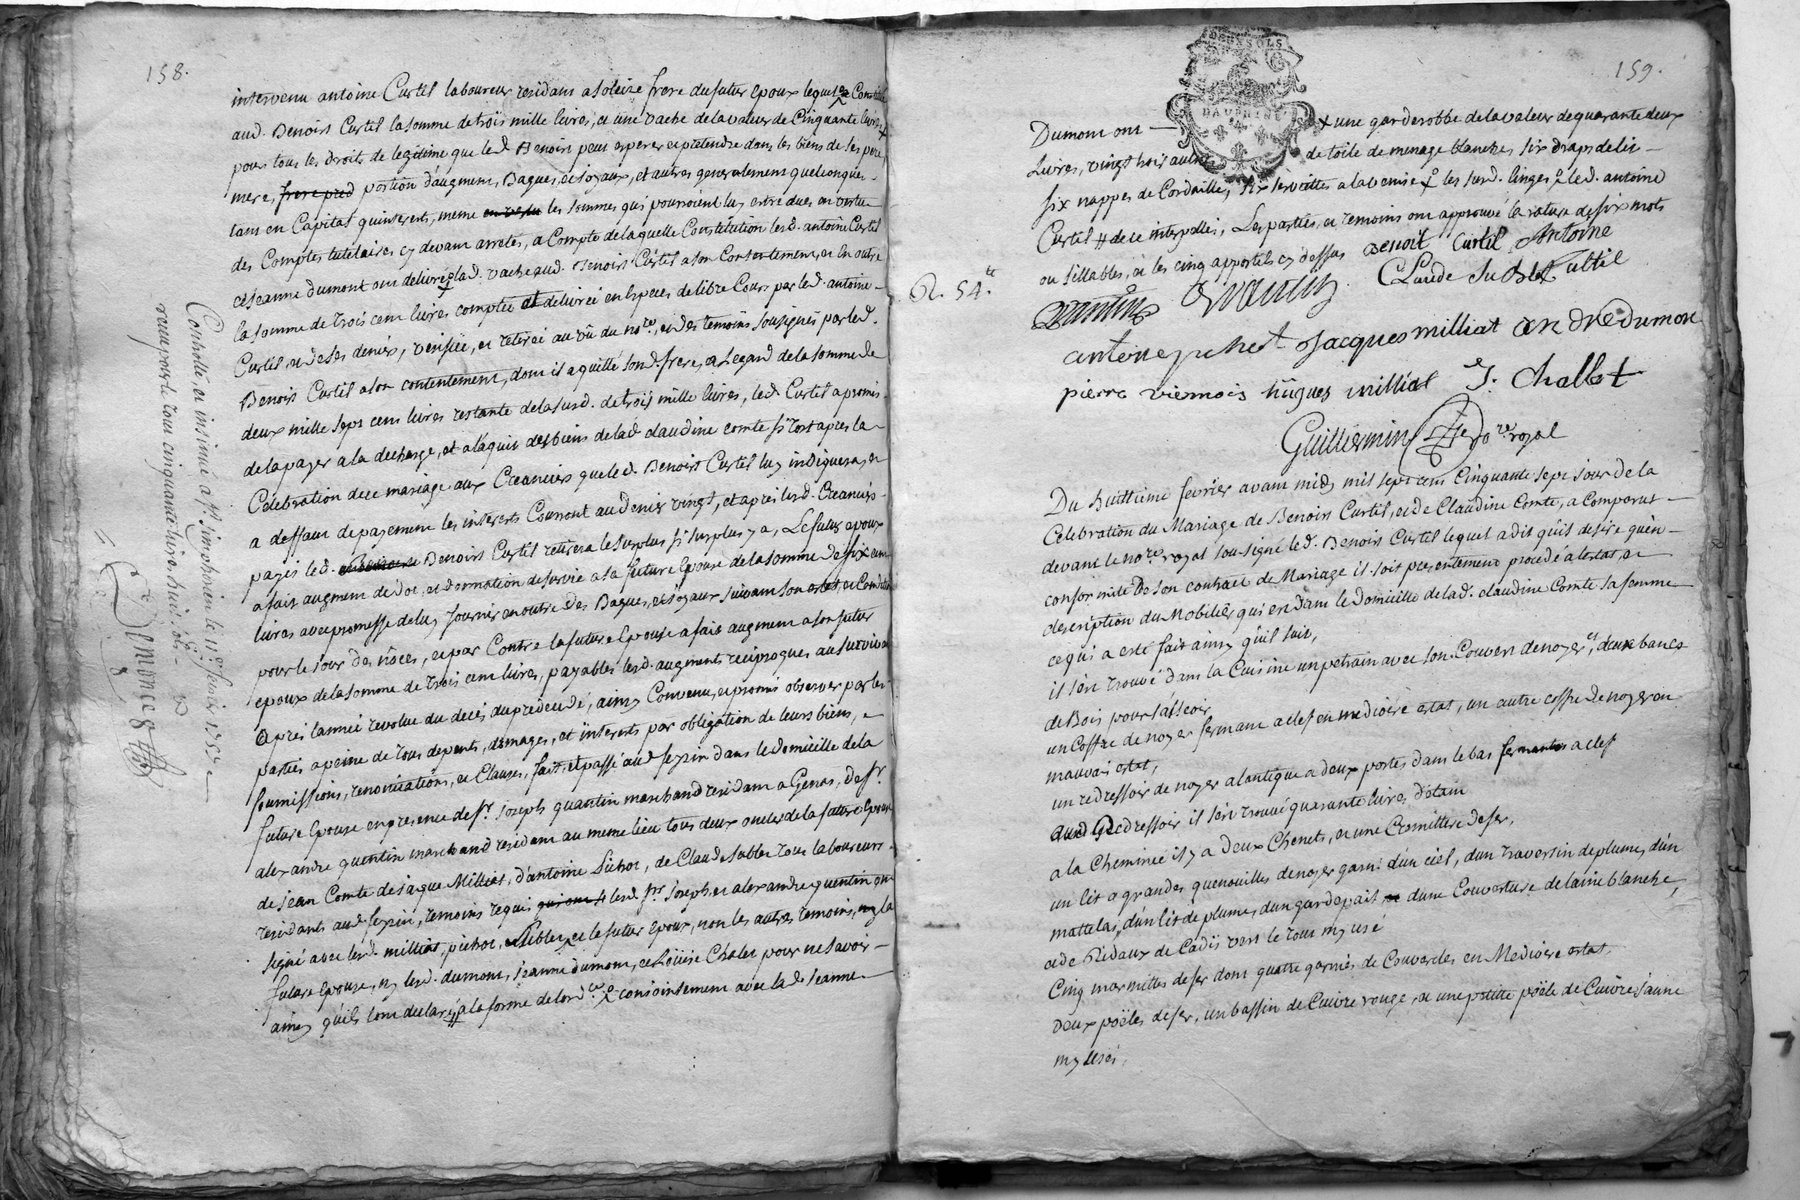 158.
intervenu antoine Curtil laboureur residant a soleize frere du futur Epoux lequel a Constitué
aud. Benoist Curtil la somme de trois mille livres, et une vache de la valeur de Cinquante livres
pour tous les droits de legitime que led. Benoist peut esperer et pretendre dans les biens de ses pere
mere, portion d'augment, Bagues, et joyaux, et autres generalement quelconques
tant en Capital qu'interests, meme les sommes qui pourroient luy estre dues en vertu
des Comptes tutelaires cy devant arretés, a Compte de laquelle Constitution lesd. antoine Curtil
et Jeanne dumont ont delivré lad. vache aud. Benoist Curtil a son Contentement, et en outre
la somme de trois cent livres comptée et delivrée en Especes de libre Cours par led. antoine
Curtil, et de ses deniers, verifiée, et retirée au vû du no.re, et des temoins sousignés par led.
Benoist Curtil a son contentement, dont il a quitté sond. frere, a l'egard de la somme de
deux mille sept cent livres restante de la susd. de trois mille livres, led. Curtil a promis
de la payer a la decharge, et a l'aquit des biens de lad. claudine comte si tost apres la
Celebration de ce mariage aux Creanciers que led. Benoist Curtil luy indiquera, et
a deffaut de payement les interests Courront au denier vingt, et apres lesd. Creanciers
payés led. Benoist Curtil retirera le surplus si surplus y a, Le futur epoux
a fait augment de dot, et donnation de survie a sa future Epouse de la somme de six cent
livres avec promesse de luy fournir en outre des Bagues, et joyaux suivant son estat, et Condition
pour le jour des nôces, et par Contre la future Epouse a fait augment a son futur
epoux de la somme de trois cent livres, payables lesd. augments reciproques au survivant
apres l'année revolue du decés du predecedé, ainsy Convenu, et promis observer par les
parties a peine de tous depents, domages, et interests par obligation de leurs biens,
soumissions, renonciations, et Clauses, fait, et passé aud. feyzin dans le domicille de la
future Epouse en presence de s.r Joseph quantin marchand resident a Genas, de s.r
alexandre quentin marchand resident au meme lieu tous deux oncles de la future Epouse
de Jean Comte de jaque Milliat, d'antoine Pichot, de Claude sublet tous laboureurs
residants aud. feyzin, temoins requis lesd. s.rs joseph et alexandre quentin ont
signé avec lesd. milliat, pichot, Sublet, et le futur Epoux, non les autres temoins, ny la
future Epouse, ny lesd. dumont, jeanne dumont, et Loüise Chalet pour ne savoir
ainsy qu'ils l'ont declaré a la forme de l'ord.ce conjointement avec lad. Jeanne
Controllé, et insinué a S.t Simphorien le fevrier 1757
reçu pour le tout cinquante livres
159.
Dumont ont — x une garderobbe de la valeur de quarante deux
Livres, vingt trois autres de toile de menage blanches, six draps de lit
six nappes de Cordaille, six serviettes a la venise les susd. linges led. antoine
Curtil de ce interpellés, Les parties, et temoins ont approuvé la rature de six mots
ou sillables, et les cinq apostels cy dessus Benoit Curtil Antoine
R. 54.tt
quantin quantin Claude Sublet curtil
antoine pichot Jacques milliat andre dumon
pierre viennois hugues milliat J. Challet
Guillermin No.re royal
Du huittieme fevrier avant midy mil sept cent Cinquante sept jour de la
Celebration du Mariage de Benoist Curtil, et de Claudine Comte, a Comparut
devant le no.re royal sousigné led. Benoist Curtil lequel a dit qu'il desire qu'en
conformité de son contract de Mariage il soit presentement procedé a l'estat, et
description du Mobilier qui est dans le domicille de lad. claudine Comte sa femme
ce qui a esté fait ainsy qu'il suit,
il s'est trouvé dans la Cuisine un petrain avec son Couvert de noyer, deux bancs
de Bois pour s'asseoir
un Coffre de noyer fermant a clef en mediocre estat, un autre coffre de noyer en
mauvais estat,
un redressoir de noyer a l'antique a deux portes dans le bas fermantes a clef
aud. Redressoir il s'est trouvé quarante livres d'étain
a la Cheminée il y a deux Chenets, et une Cremillere de fer,
un lit a grandes quenouilles de noyer garni d'un ciel, d'un traversin de plume, d'un
mattelas, d'un lit de plume, d'un gardepaille d'une Couverture de laine blanche,
et de Rideaux de Cadis vert le tout my usé
Cinq marmittes de fer dont quatre garnies de Couvercles en Mediocre estat,
deux poëles de fer, un bassin de Cuivre rouge, et une petite poële de Cuivre jaune
my usés,